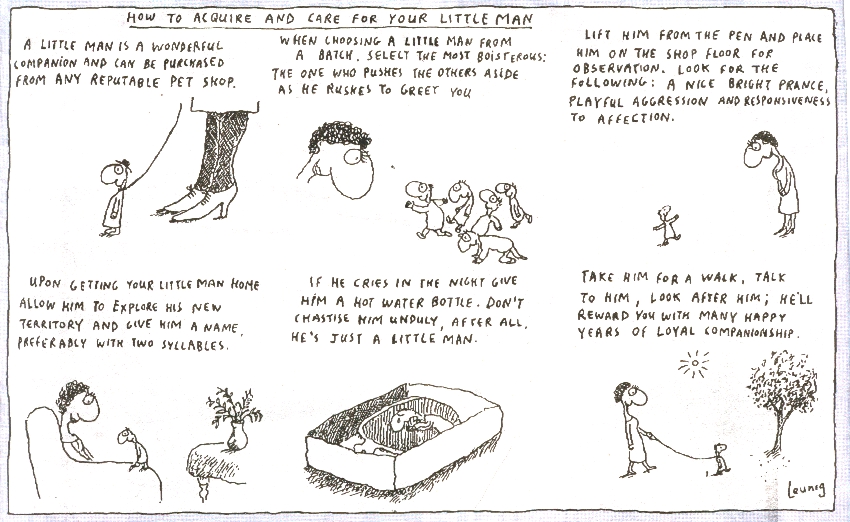 HOW TO ACQUIRE AND CARE FOR YOUR LITTLE MAN
A LITTLE MAN IS A WONDERFUL
COMPANION AND CAN BE PURCHASED
FROM ANY REPUTABLE PET SHOP.
WHEN CHOOSING A LITTLE MAN FROM
A BATCH, SELECT THE MOST BOISTEROUS;
THE ONE WHO PUSHES THE OTHERS ASIDE
AS HE RUSHES TO GREET YOU
LIFT HIM FROM THE PEN AND PLACE
HIM ON THE SHOP FLOOR FOR
OBSERVATION. LOOK FOR THE
FOLLOWING: A NICE BRIGHT PRANCE,
PLAYFUL AGGRESSION AND RESPONSIVENESS
TO AFFECTION.
UPON GETTING YOUR LITTLE MAN HOME
ALLOW HIM TO EXPLORE HIS NEW
TERRITORY AND GIVE HIM A NAME,
PREFERABLY WITH TWO SYLLABLES.
IF HE CRIES IN THE NIGHT GIVE
HIM A HOT WATER BOTTLE. DON'T
CHASTISE HIM UNDULY, AFTER ALL,
HE'S JUST A LITTLE MAN.
TAKE HIM FOR A WALK, TALK
TO HIM, LOOK AFTER HIM; HE'LL
REWARD YOU WITH MANY HAPPY
YEARS OF LOYAL COMPANIONSHIP.
Leunig